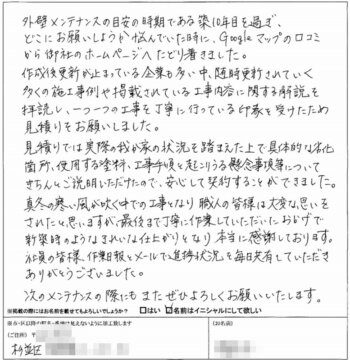 外壁メンテナンスの目安の時期である築10年目を過ぎ、
どこにお願いしようか悩んでいた時に、Googleマップの口コミ
から御社のホームページへたどり着きました。
作成後更新が止まっている企業も多い中、随時更新されていく
多くの施工事例や掲載されている工事内容に関する解説を
拝読し、一つ一つの工事を丁寧に行っている印象を受けたため
見積りをお願いしました。
見積りでは実際の我が家の状況を踏まえた上で具体的な劣化
箇所、使用する塗料、工事手順と起こりうる懸念事項等について
きちんとご説明いただけたので、安心して契約することができました。
真冬の寒い風が吹く中での工事となり職人の皆様は大変な思いを
されたと思いますが、最後まで丁寧に作業していただいたおかげで
新築時のようなきれいな仕上がりとなり本当に感謝しております。
社員の皆様、作業日報とメールで進捗状況を毎日共有していただき
ありがとうございました。
次のメンテナンスの際にもまたぜひよろしくお願いいたします。
※掲載の際にはお名前を載せてもよろしいでしょうか? □はい ☑名前はイニシャルにして欲しい
※市・区以降の
見えないように加工致します
(ご住所) 〒
(お名前)
杉並区